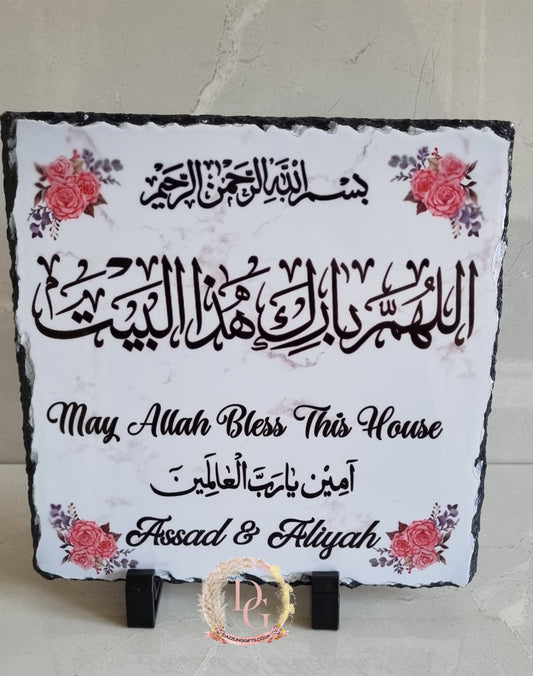 بسم الله الرحمن الرحيم
اللهم بارك هذا البيت
May Allah Bless This House
آمين يا رب العالمين
Assad & Aliyah
DG
DAZZLINGGIFTS.CO.UK